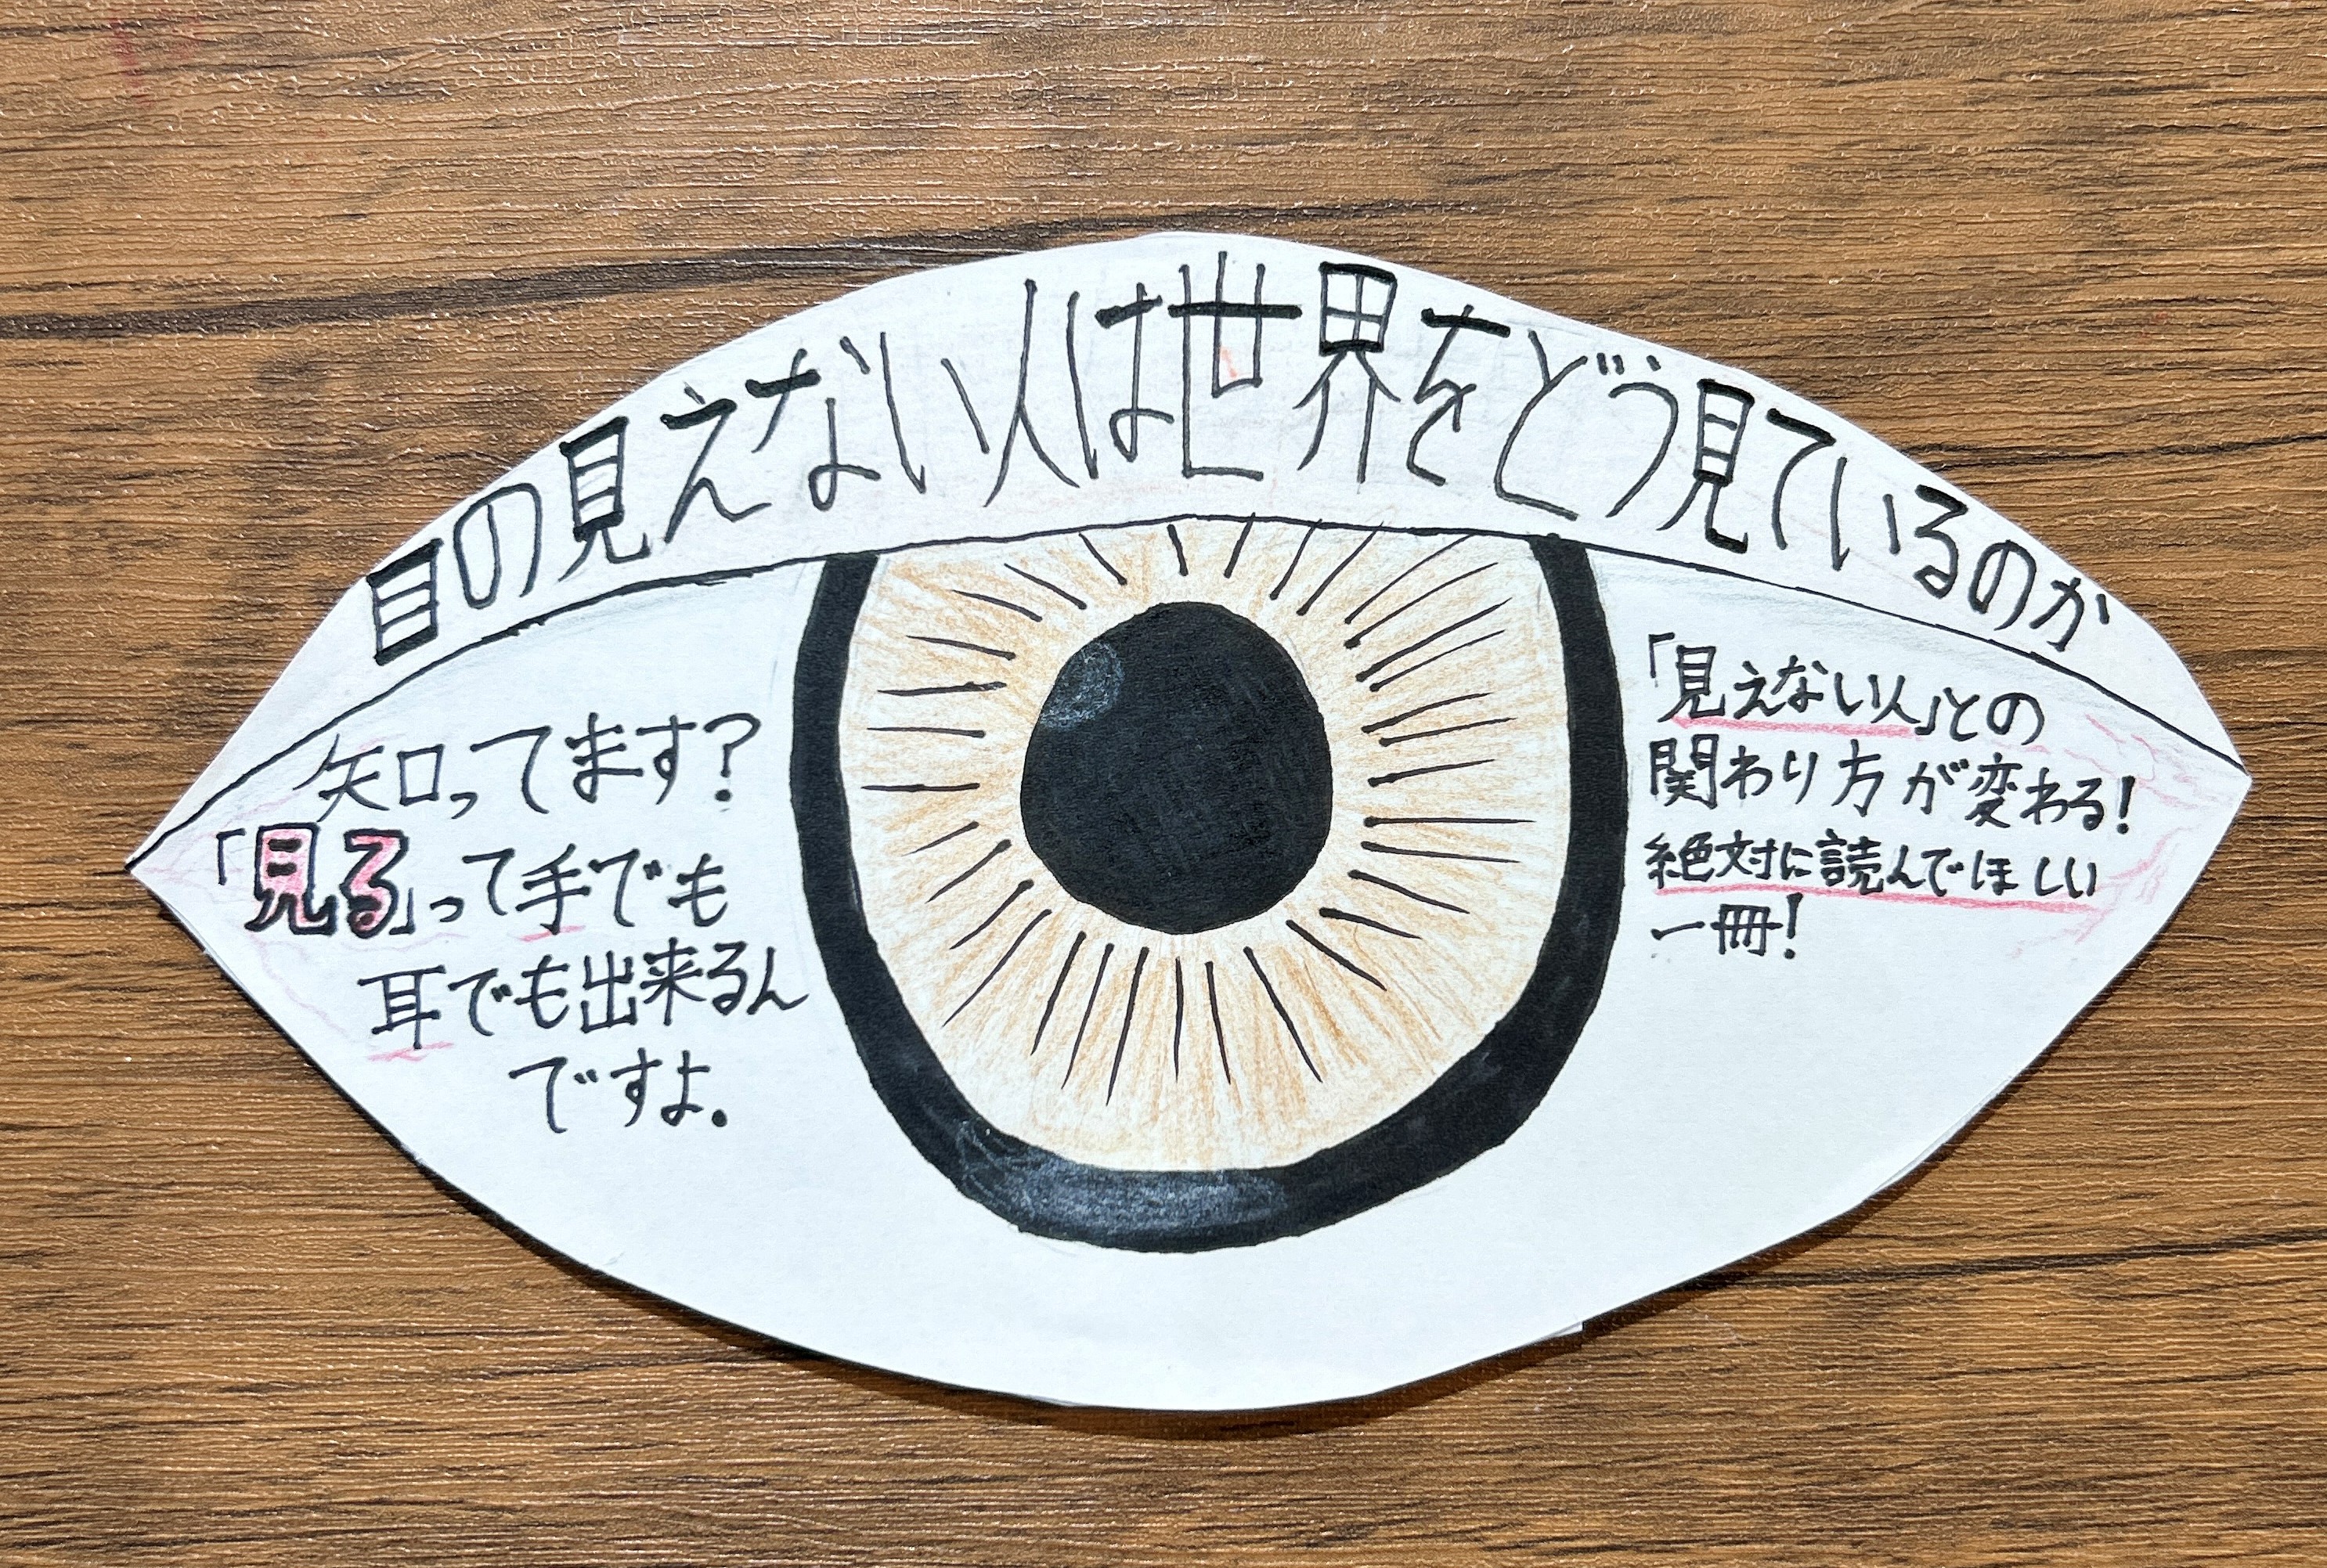 目の見えない人は世界をどう見ているのか
知ってます?
「見る」って手でも
耳でも出来るん
ですよ.
「見えない人」との
関わり方が変わる!
絶対に読んでほしい
一冊!